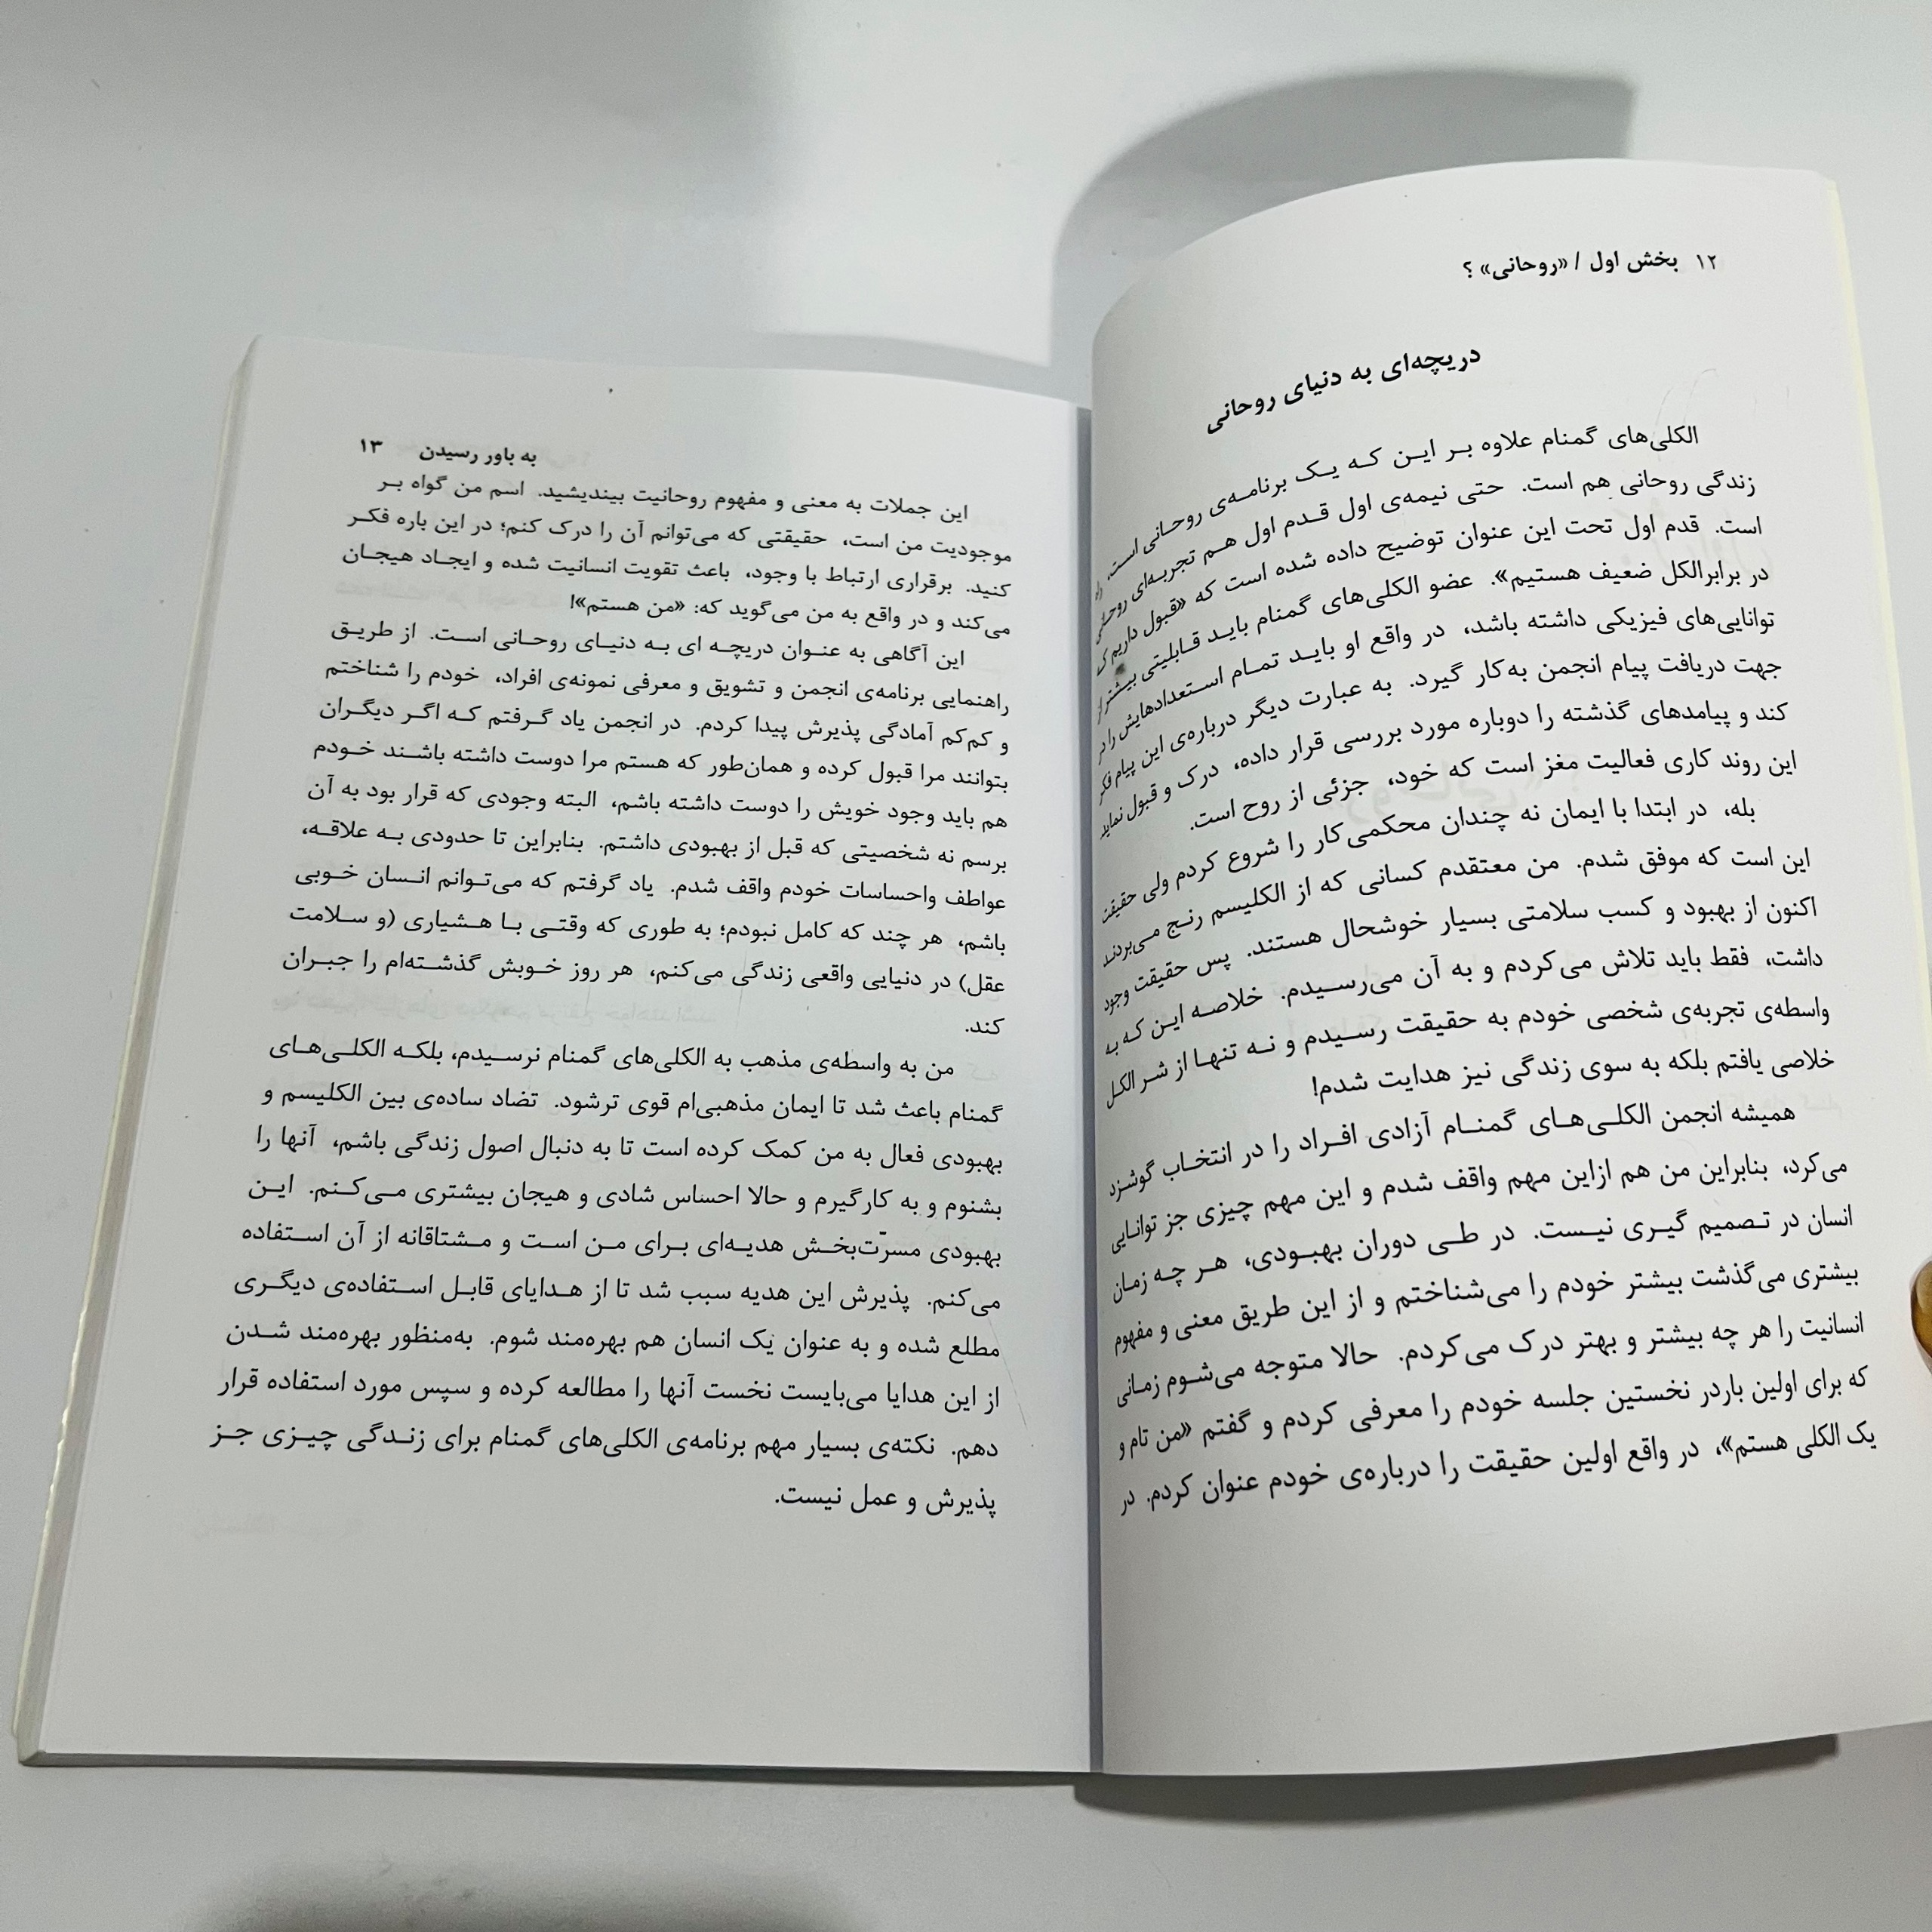 ۱۲ بخش اول / «روحانی» ؟
دریچه‌ای به دنیای روحانی
الکلی‌های گمنام علاوه بر این که یک برنامه‌ی روحانی است، راه
زندگی روحانی هم است. حتی نیمه‌ی اول قدم اول هم تجربه‌ای روحانی
است. قدم اول تحت این عنوان توضیح داده شده است که «قبول داریم که
در برابرالکل ضعیف هستیم». عضو الکلی‌های گمنام باید قابلیتی بیشتر از
توانایی‌های فیزیکی داشته باشد، در واقع او باید تمام استعدادهایش را در
جهت دریافت پیام انجمن به‌کار گیرد. به عبارت دیگر درباره‌ی این پیام فکر
کند و پیامدهای گذشته را دوباره مورد بررسی قرار داده، درک و قبول نماید
این روند کاری فعالیت مغز است که خود، جزئی از روح است.
بله، در ابتدا با ایمان نه چندان محکمی‌کار را شروع کردم ولی حقیقت
این است که موفق شدم. من معتقدم کسانی که از الکلیسم رنج می‌بردند
اکنون از بهبود و کسب سلامتی بسیار خوشحال هستند. پس حقیقت وجود
داشت، فقط باید تلاش می‌کردم و به آن می‌رسیدم. خلاصه این که به
واسطه‌ی تجربه‌ی شخصی خودم به حقیقت رسیدم و نه تنها از شر الکل
خلاصی یافتم بلکه به سوی زندگی نیز هدایت شدم!
همیشه انجمن الکلی‌های گمنام آزادی افراد را در انتخاب گوشزد
می‌کرد، بنابراین من هم ازاین مهم واقف شدم و این مهم چیزی جز توانایی
انسان در تصمیم گیری نیست. در طی دوران بهبودی، هر چه زمان
بیشتری می‌گذشت بیشتر خودم را می‌شناختم و از این طریق معنی و مفهوم
انسانیت را هر چه بیشتر و بهتر درک می‌کردم. حالا متوجه می‌شوم زمانی
که برای اولین باردر نخستین جلسه خودم را معرفی کردم و گفتم «من تام و
یک الکلی هستم»، در واقع اولین حقیقت را درباره‌ی خودم عنوان کردم. در
به باور رسیدن ۱۳
این جملات به معنی و مفهوم روحانیت بیندیشید. اسم من گواه بر
موجودیت من است، حقیقتی که می‌توانم آن را درک کنم؛ در این باره فکر
کنید. برقراری ارتباط با وجود، باعث تقویت انسانیت شده و ایجاد هیجان
می‌کند و در واقع به من می‌گوید که: «من هستم»!
این آگاهی به عنوان دریچه ای به دنیای روحانی است. از طریق
راهنمایی برنامه‌ی انجمن و تشویق و معرفی نمونه‌ی افراد، خودم را شناختم
و کم‌کم آمادگی پذیرش پیدا کردم. در انجمن یاد گرفتم که اگر دیگران
بتوانند مرا قبول کرده و همان‌طور که هستم مرا دوست داشته باشند خودم
هم باید وجود خویش را دوست داشته باشم، البته وجودی که قرار بود به آن
برسم نه شخصیتی که قبل از بهبودی داشتم. بنابراین تا حدودی به علاقه،
عواطف واحساسات خودم واقف شدم. یاد گرفتم که می‌توانم انسان خوبی
باشم، هر چند که کامل نبودم؛ به طوری که وقتی با هشیاری (و سلامت
عقل) در دنیایی واقعی زندگی می‌کنم، هر روز خوبش گذشته‌ام را جبران
کند.
من به واسطه‌ی مذهب به الکلی‌های گمنام نرسیدم، بلکه الکلی‌های
گمنام باعث شد تا ایمان مذهبی‌ام قوی ترشود. تضاد ساده‌ی بین الکلیسم و
بهبودی فعال به من کمک کرده است تا به دنبال اصول زندگی باشم، آنها را
بشنوم و به کارگیرم و حالا احساس شادی و هیجان بیشتری می‌کنم. این
بهبودی مسرّت‌بخش هدیه‌ای برای من است و مشتاقانه از آن استفاده
می‌کنم. پذیرش این هدیه سبب شد تا از هدایای قابل استفاده‌ی دیگری
مطلع شده و به عنوان یک انسان هم بهره‌مند شوم. به‌منظور بهره‌مند شدن
از این هدایا می‌بایست نخست آنها را مطالعه کرده و سپس مورد استفاده قرار
دهم. نکته‌ی بسیار مهم برنامه‌ی الکلی‌های گمنام برای زندگی چیزی جز
پذیرش و عمل نیست.